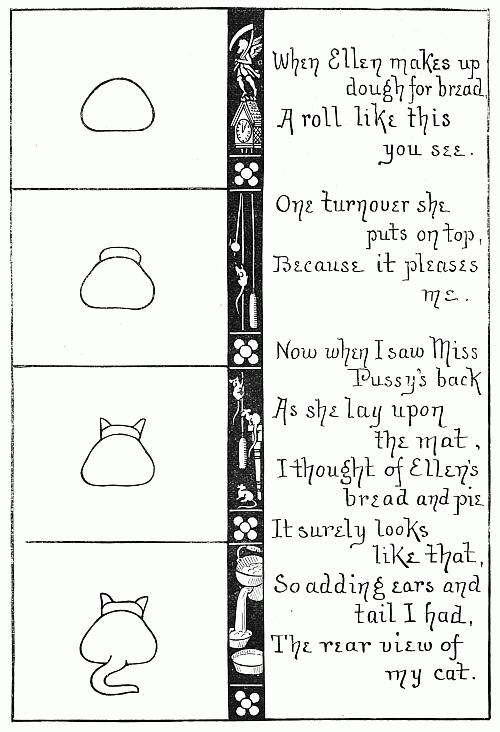 When Ellen makes up
dough for bread,
A roll like this
you see.
One turnover she
puts on top,
Because it pleases
me.
Now when I saw Miss
Pussy's back
As she lay upon
the mat,
I thought of Ellen's
bread and pie
It surely looks
like that,
So adding ears and
tail I had,
The rear view of
my cat.